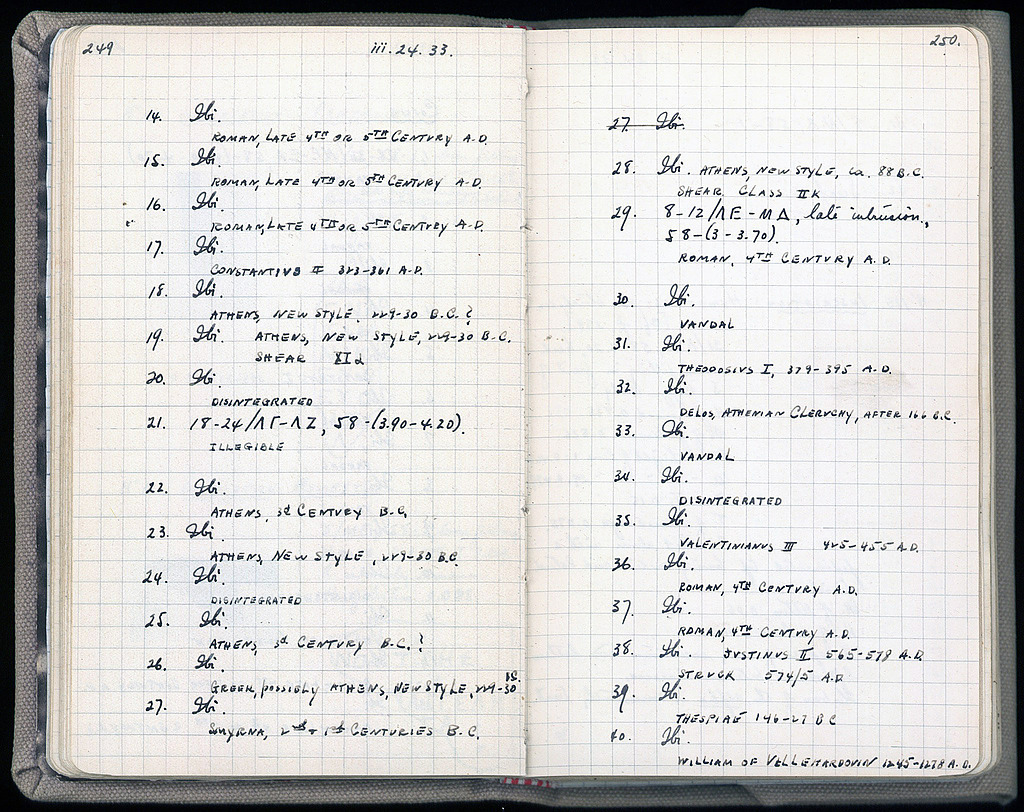 249 iii.24.33.
14. Ibi.
ROMAN, LATE 4TH OR 5TH CENTURY A.D.
15. Ibi.
ROMAN, LATE 4TH OR 5TH CENTURY A.D.
16. Ibi.
ROMAN, LATE 4TH OR 5TH CENTURY A.D.
17. Ibi.
CONSTANTIUS II 323-361 A.D.
18. Ibi.
ATHENS, NEW STYLE, 229-30 B.C.?
19. Ibi. ATHENS, NEW STYLE, 229-30 B.C.
SHEAR XI d
20. Ibi.
DISINTEGRATED
21. 18-24/ΛΓ-ΛΖ, 58-(3.90-4.20).
ILLEGIBLE
22. Ibi.
ATHENS, 3d CENTURY B.C.
23. Ibi.
ATHENS, NEW STYLE, 229-30 B.C.
24. Ibi.
DISINTEGRATED
25. Ibi.
ATHENS, 3d. CENTURY B.C.?
26. Ibi.
GREEK, POSSIBLY ATHENS, NEW STYLE, 229-30 B.C.
27. Ibi.
SMYRNA, 2nd + 1st CENTURIES B.C.
250.
27. Ibi.
28. Ibi. ATHENS, NEW STYLE, ca. 88 B.C.
SHEAR CLASS II K
29. 8-12/ΛΕ-ΜΔ, late intrusion,
58-(3-3.70).
ROMAN, 4TH CENTURY A.D.
30. Ibi.
VANDAL
31. Ibi.
THEODOSIUS I, 379-395 A.D.
32. Ibi.
DELOS, ATHENIAN CLERUCHY, AFTER 166 B.C.
33. Ibi.
VANDAL
34. Ibi.
DISINTEGRATED
35. Ibi.
VALENTINIANUS III 425-455 A.D.
36. Ibi.
ROMAN, 4TH CENTURY A.D.
37. Ibi.
ROMAN, 4TH CENTURY A.D.
38. Ibi. JUSTINUS II 565-578 A.D.
STRUCK 574/5 A.D.
39. Ibi.
THESPIAE 146-27 B C
40. Ibi.
WILLIAM OF VILLEHARDOUIN 1245-1278 A.D.